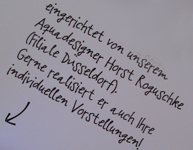 eingerichtet von unserem
Aquadesigner Horst Roguschke
(Filiale Düsseldorf).
Gerne realisiert er auch Ihre
individuellen Vorstellungen!